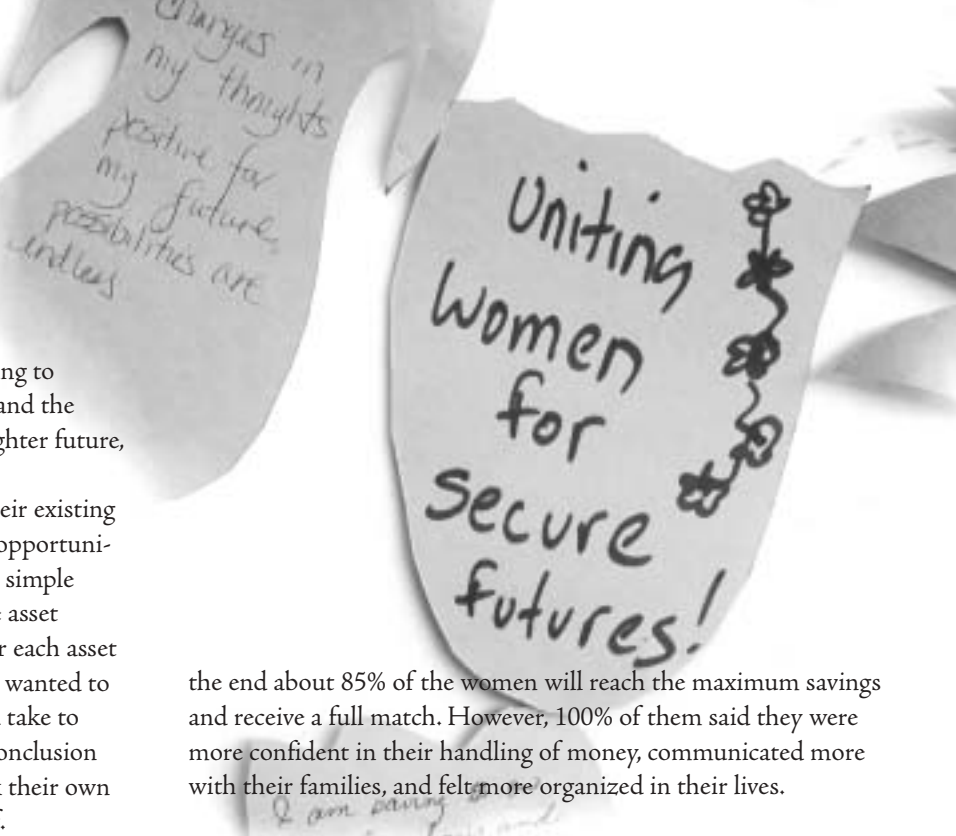 changes in
my thoughts
positive for
my future,
possibilities are
endless
Uniting
Women
for
secure
futures!
ng to
and the
ghter future,
eir existing
opportuni-
simple
asset
r each asset
wanted to
take to
onclusion
their own
the end about 85% of the women will reach the maximum savings
and receive a full match. However, 100% of them said they were
more confident in their handling of money, communicated more
with their families, and felt more organized in their lives.
I am saving